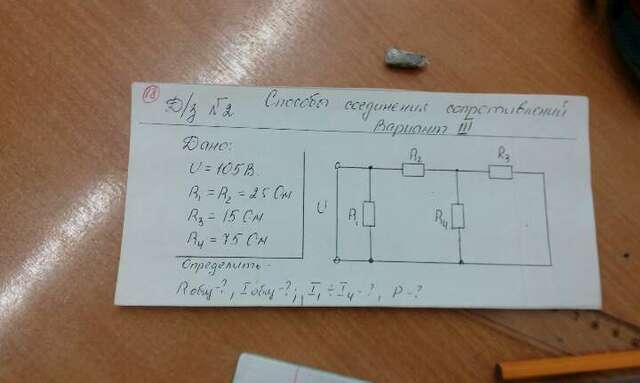 18
Д/з №2 Способы соединения сопротивлений
Вариант III
Дано:
U = 105 В.
R₁ = R₂ = 25 Ом
R₃ = 15 Ом
R₄ = 75 Ом
Определить
Rобщ-?, Iобщ-?; I₁ ÷ I₄-?, P-?
U
R₁
R₂
R₄
R₃